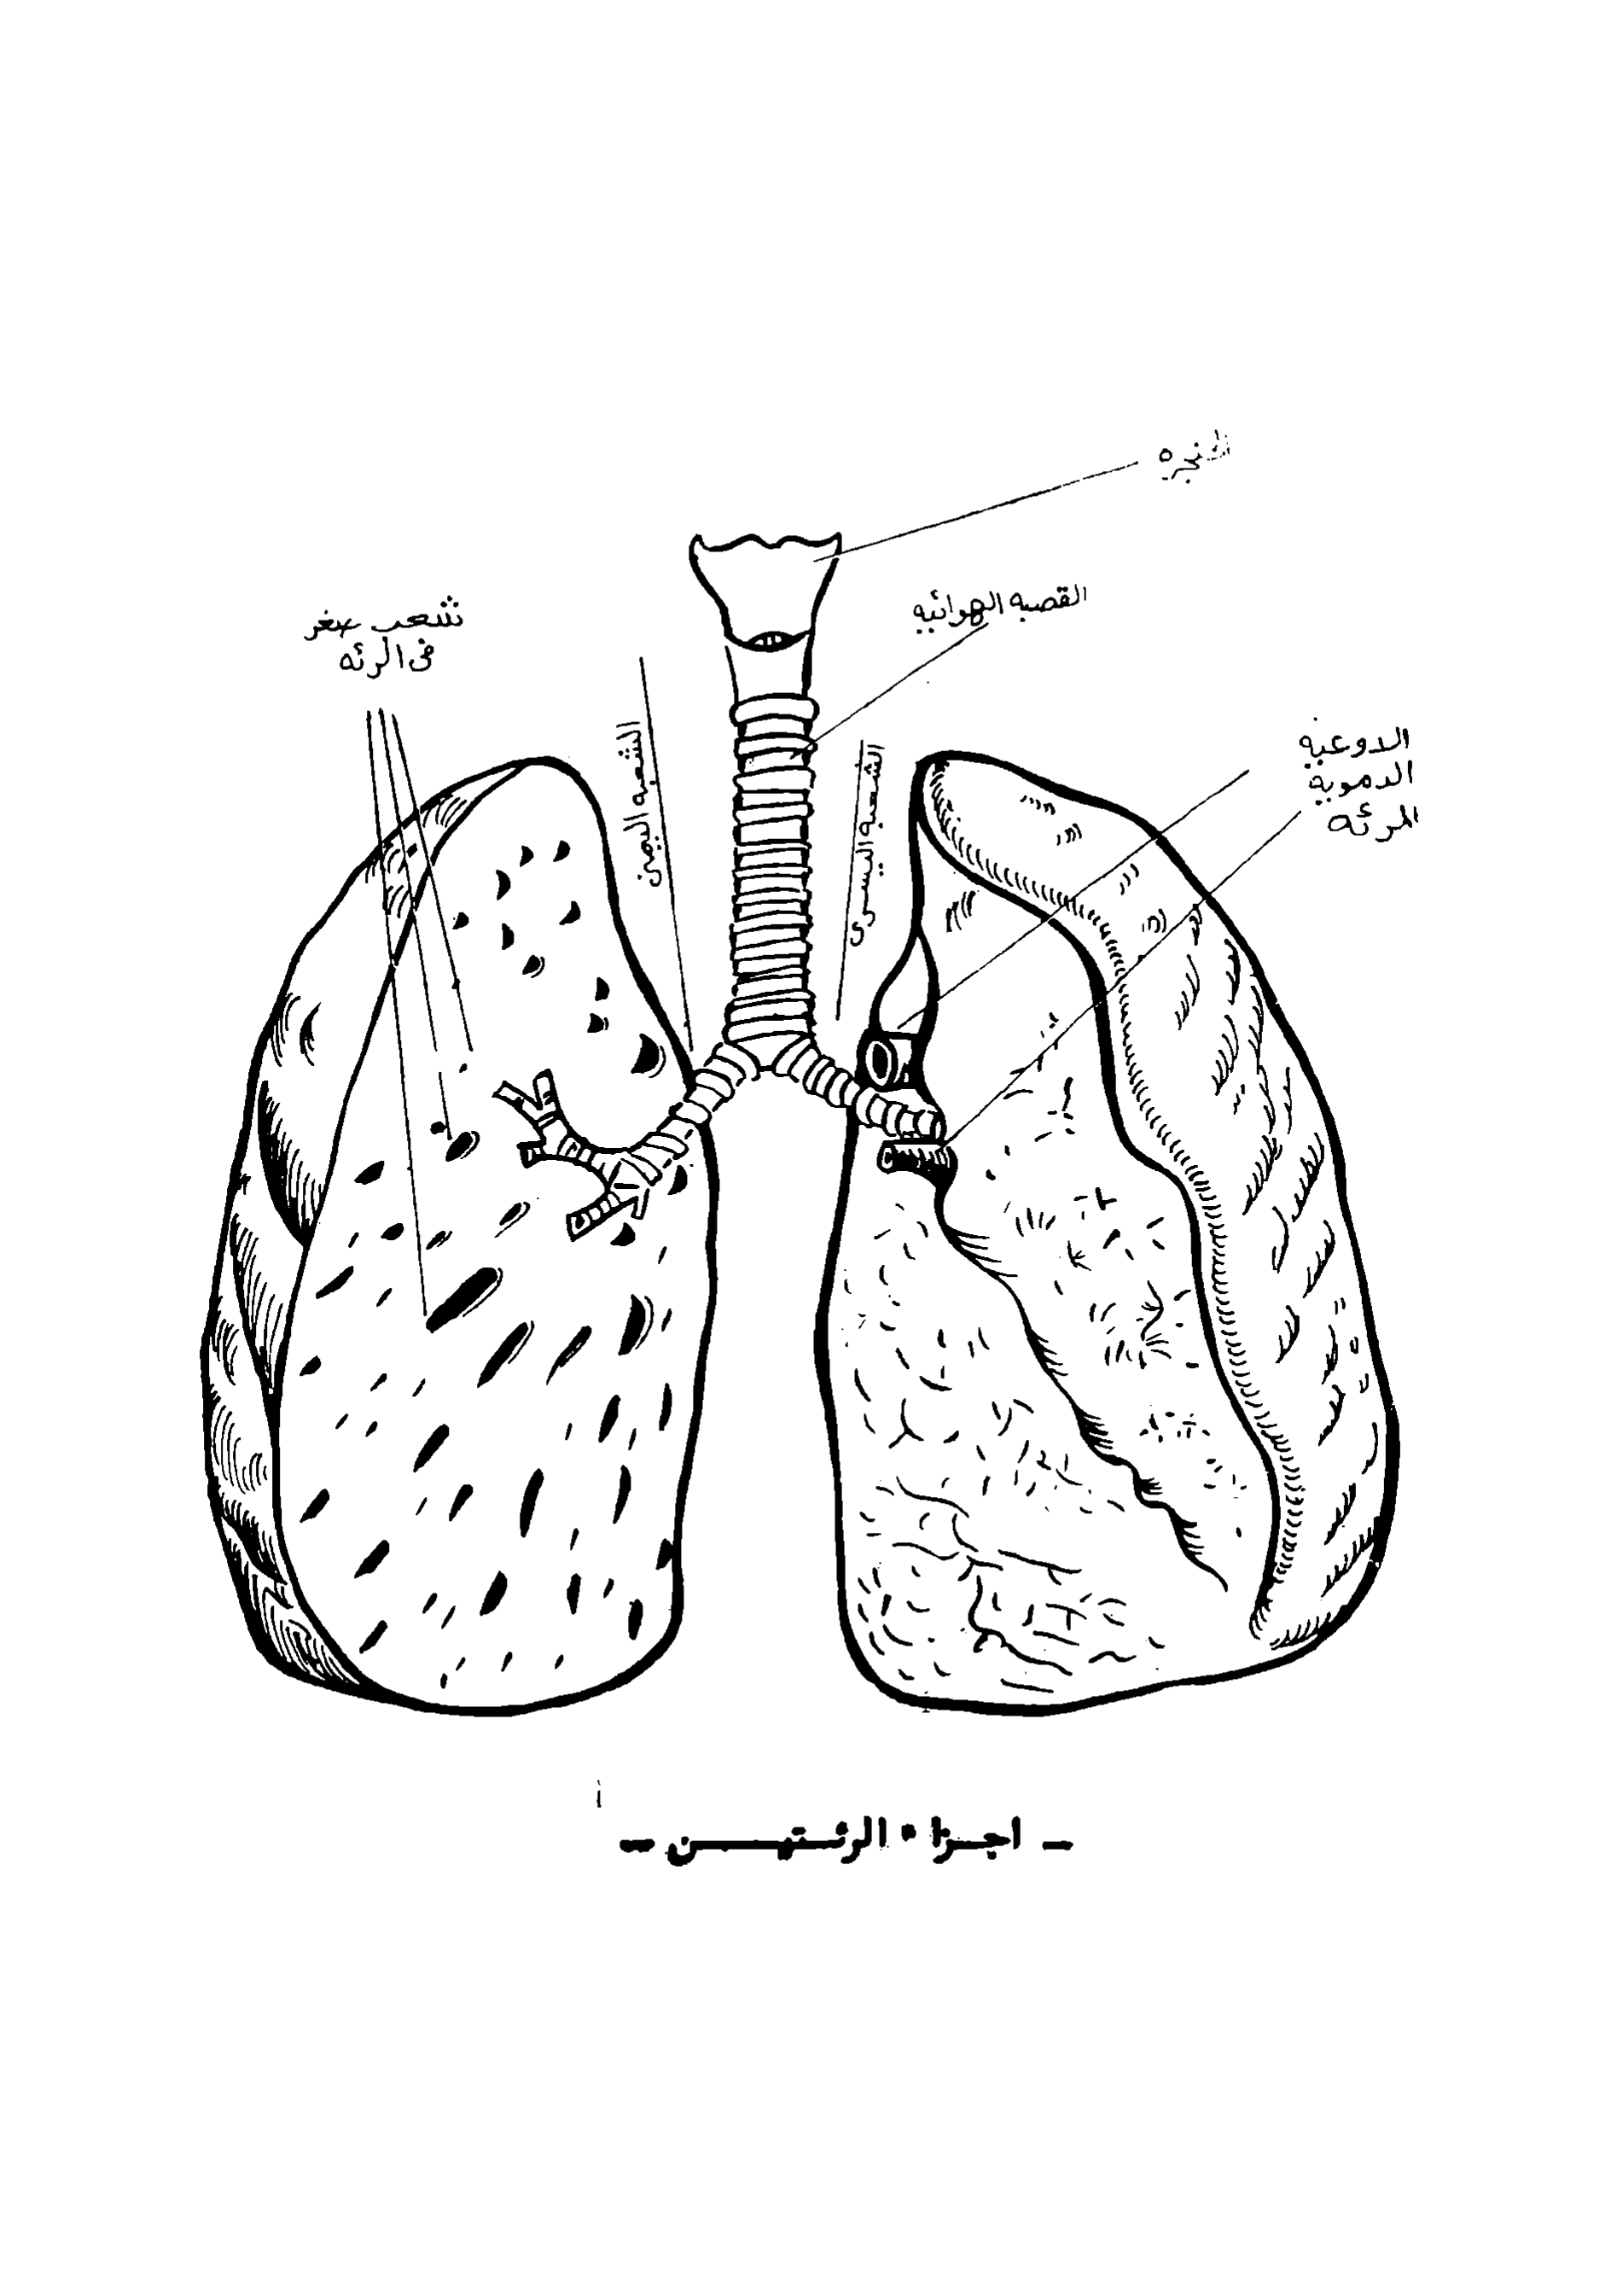 الحنجره
القصبه الهوائيه
شعب صغر
فى الرئه
الشعبه اليمنى
الشعبه اليسرى
الاوعيه
الدمويه
للرئه
- اجزاء الرئتين -